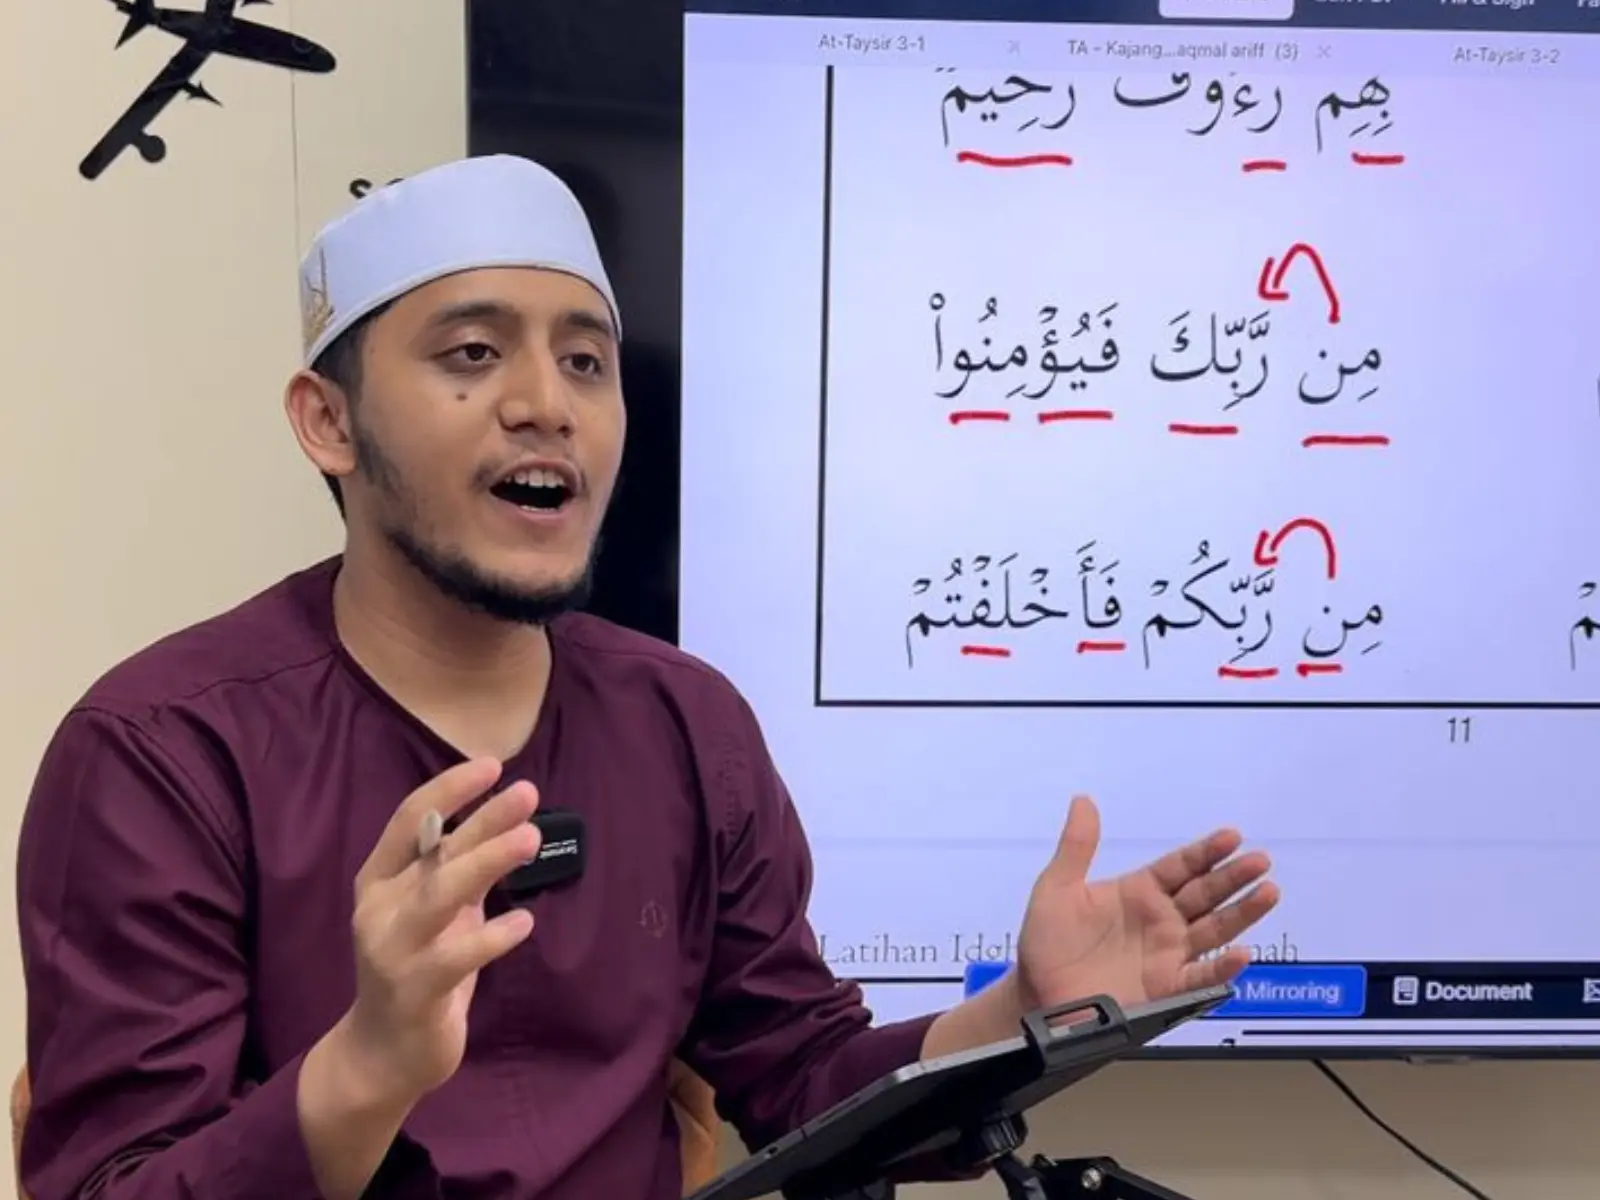 At-Taysir 3-1
TA - Kajang...aqmal ariff (3)
At-Taysir 3-2
بِهِم رَءُوفٌ رَحِيمٌ
مِن رَّبِّكَ فَيُؤْمِنُوا۟
مِن رَّبِّكُمْ فَأَخْلَفْتُمْ
11
Latihan
Mirroring
Document
Saramonic